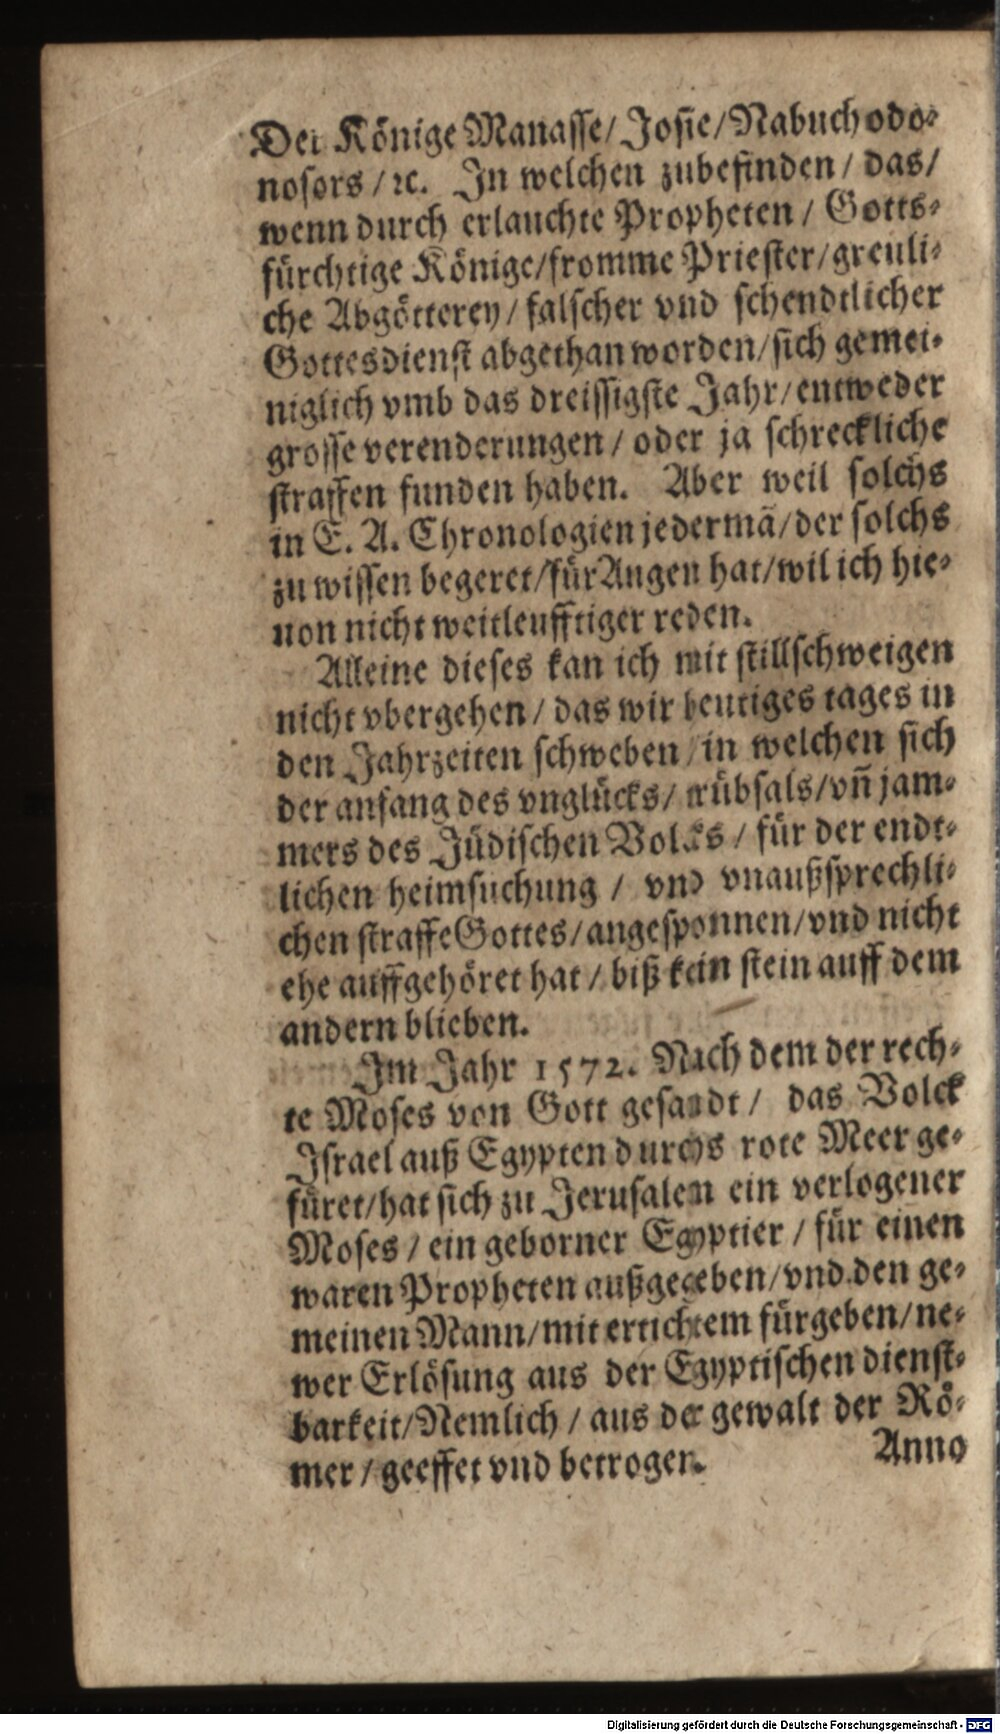 Der Könige Manasse/ Josie/ Nabuchodo⸗
nosors/ ꝛc. In welchen zubefinden/ das/
wenn durch erlauchte Propheten/ Gotts⸗
fürchtige Könige/ fromme Priester/ greuli⸗
che Abgötterey/ falscher vnd schendtlicher
Gottesdienst abgethan worden/ sich gemei⸗
niglich vmb das dreissigste Jahr/ entweder
grosse verenderungen/ oder ja schreckliche
straffen funden haben. Aber weil solchs
in E. A. Chronologien jedermā/ der solchs
zu wissen begeret/ für Augen hat/ wil ich hie⸗
uon nicht weitleufftiger reden.
Alleine dieses kan ich mit stillschweigen
nicht vbergehen/ das wir heutiges tages in
den Jahrzeiten schweben/ in welchen sich
der anfang des vnglücks/ trübsals/ vn̄ jam⸗
mers des Jüdischen Volcks/ für der endt⸗
lichen heimsuchung/ vnd vnaußsprechli⸗
chen straffe Gottes/ angesponnen/ vnd nicht
ehe auffgehöret hat/ biß kein stein auff dem
andern blieben.
Im Jahr 1572. Nach dem der rech⸗
te Moses von Gott gesandt/ das Volck
Israel auß Egypten durchs rote Meer ge⸗
füret/ hat sich zu Jerusalem ein verlogener
Moses/ ein geborner Egyptier/ für einen
waren Propheten außgegeben/ vnd den ge⸗
meinen Mann/ mit ertichtem fürgeben/ ne⸗
wer Erlösung aus der Egyptischen dienst⸗
barkeit/ Nemlich/ aus der gewalt der Rö⸗
mer/ geeffet vnd betrogen.
Anno
Digitalisierung gefördert durch die Deutsche Forschungsgemeinschaft - DFG